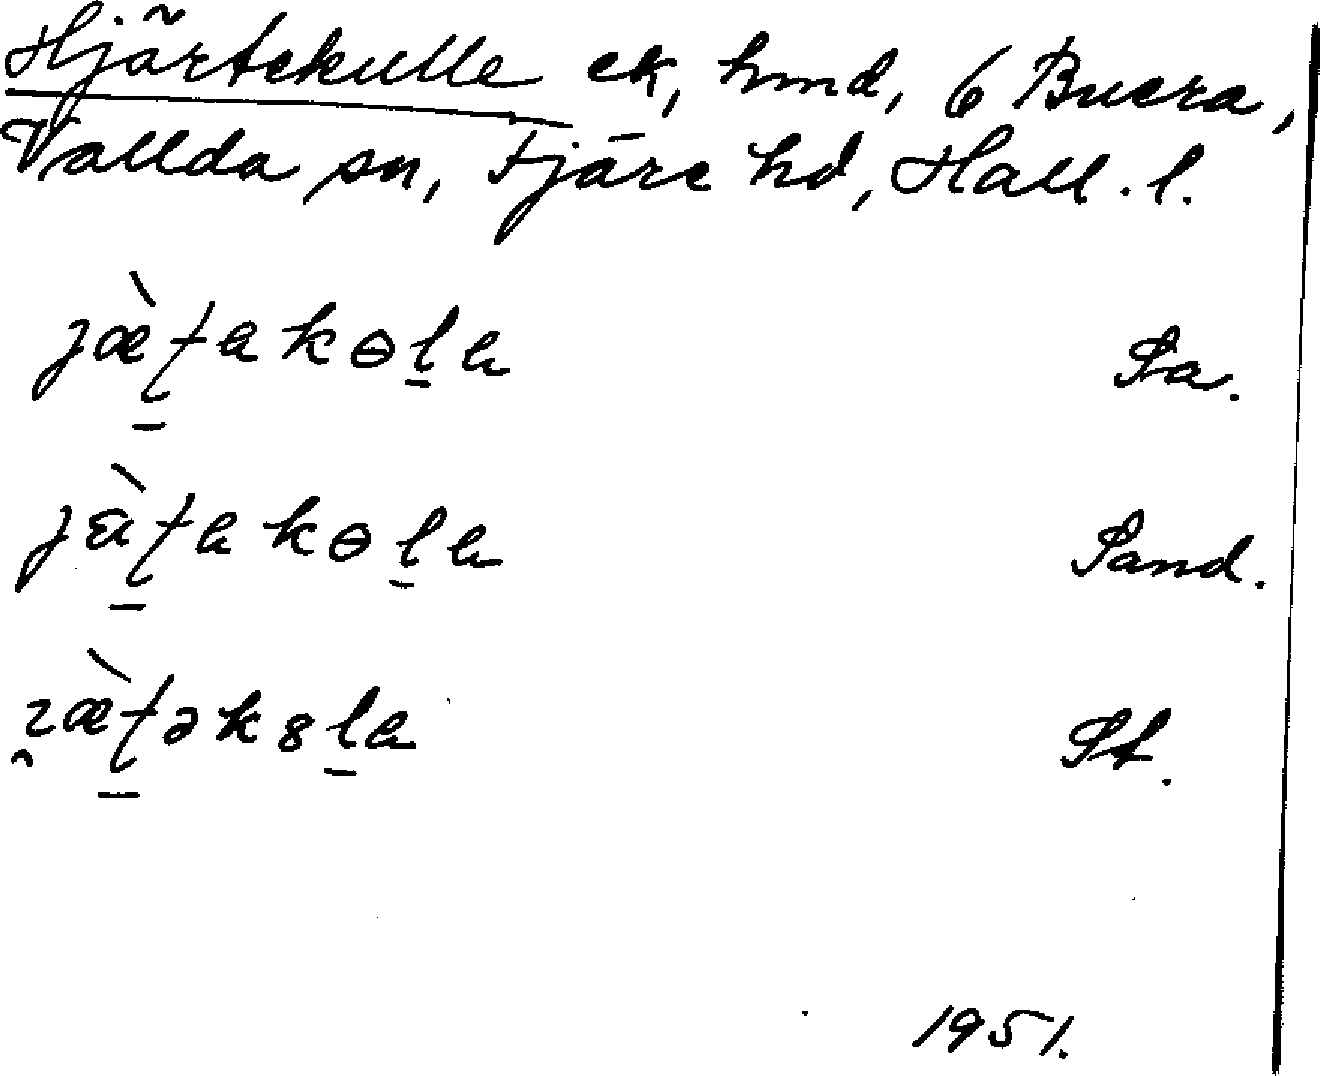 Hjärtekulle ek, hmd, 6 Buera,
Vallda sn, Fjäre hd, Hall. l.
jæ̀ʈakɵḻa Sa.
jɛ̀ʈakɵḻa Sand.
ɿæ̀ʈək8ḻa St.
1951.